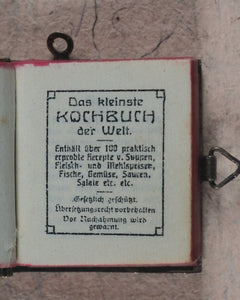 Das kleinste
KOCHBUCH
der Welt.
Enthält über 100 praktisch
erprobte Recepte v. Suppen,
Fleisch- und Mehlspeisen,
Fische, Gemüse, Saucen,
Salate etc. etc.
Gesetzlich geschützt.
Übersetzungsrecht vorbehalten
Vor Nachahmung wird
gewarnt.